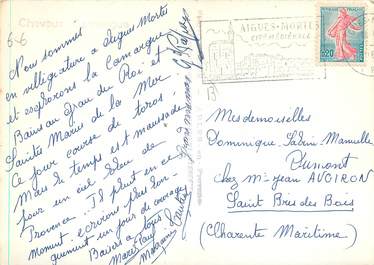 6-6
Nous sommes
en villégiature a Aigues Mortes
et explorons la Camargue
Bains au Grau du Roi et
Saintes Marie de la Mer
Ce jour course de toros
Mais le temps est maussade
pour un ciel bleu de
Provence. Il pleut en ce
moment. ecrirons plus lon-
guement un jour de mouvais
Baisers a tous
Marie Paule
AIGUES-MORTES
CITE MEDIEVALE
REPUBLIQUE FRANÇAISE
0,20
POSTES
B
Mesdemoiselles
Dominique Sabine-Manuelle
Dumont
chez Mr Jean AVOIRON
Saint Bris des Bois
(Charente Maritime)